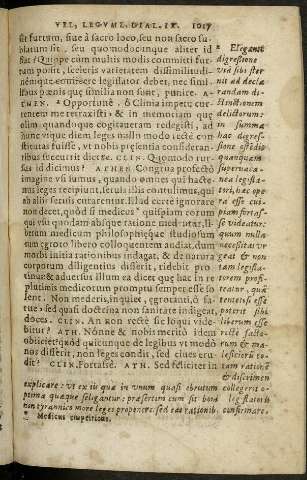 VEL, LEGVM, DIAL. IX. 1017
sit furtum, siue à sacro loco, seu non sacro su-
blatum sit, seu quomodocunque aliter id
fiat? Quippe cum multis modis committi fur-
tum possit, sceleris varietatem dissimilitudi-
némque conuenire legislator debet, nec dissimi-
libus pœnis quæ similia non sunt, punire. A-
THEN. * Opportunè, ô Clinia imperu cur-
rentem me retraxisti: & in memoriam quæ
olim quandoque cogitaueram redegisti, ad
hunc vsque diem leges nullo modo rectè con-
stitutas fuisse, vt nobis præsentia consideran-
tibus succurrit dicere. CLIN. Quomodo rur-
sus id dicimus? ATHEN. Congrua profectò
imagine vsi sumus, quando omnes qui hacte-
nus leges recipiunt, seruis illis contulimus, qui
ab aliis seruis curarentur. Illud certè ignorare
non decet, quòd si medicus quispiam eorum
qui vsu quodam absque ratione medicantur, li-
berum medicum philosophiæque studiosum
cum ægroto libero colloquentem audiat, dum
morbi initia rationibus indagat, & de natura
corporum diligentius disserit, ridebit pro-
tinus & aduersus illum ea dicet quæ hac in re
plurimis medicorum promptu semper esse so-
lent. Non mederis, inquiet, ægrotanti, ô fa-
tue: sed quasi doctrina non sanitate indigeat,
doces. CLIN. An non rectè sic loqui vide-
bitur? ATH. Nónne & nobis meritò idem
obiiciet? quòd quicunque de legibus vt modò
nos disserit, non leges condit, sed ciues eru-
dit? CLIN. Fortassè. ATH. Sed feliciter in
* Eleganti
digressione
vtà sibi ster-
nit ad decla-
randam di-
stinctionem
delictorum:
in summæ
hac digres-
sione ostēdit
quanquam
superuaca-
nea legisla-
tori, hac ope-
ra esse cui-
piam fortas-
se videatur:
quum nulla
necessitas vr-
geat & non
tam legisla-
torem
profi-
teatur, quæ
tentensis esse
poterit sibi
liberum esse
rectè facto-
rum & ma-
leficiorū to-
tam rationē
& discrimen
explicare: vt ex iis quæ in vnum quasi obrutum collegerit o-
ptima quæque seligantur: præsertim cum sit boni legislatoris
non tyrannico more leges proponere, sed eas rationib. confirmare.
* Medicus empiricus.